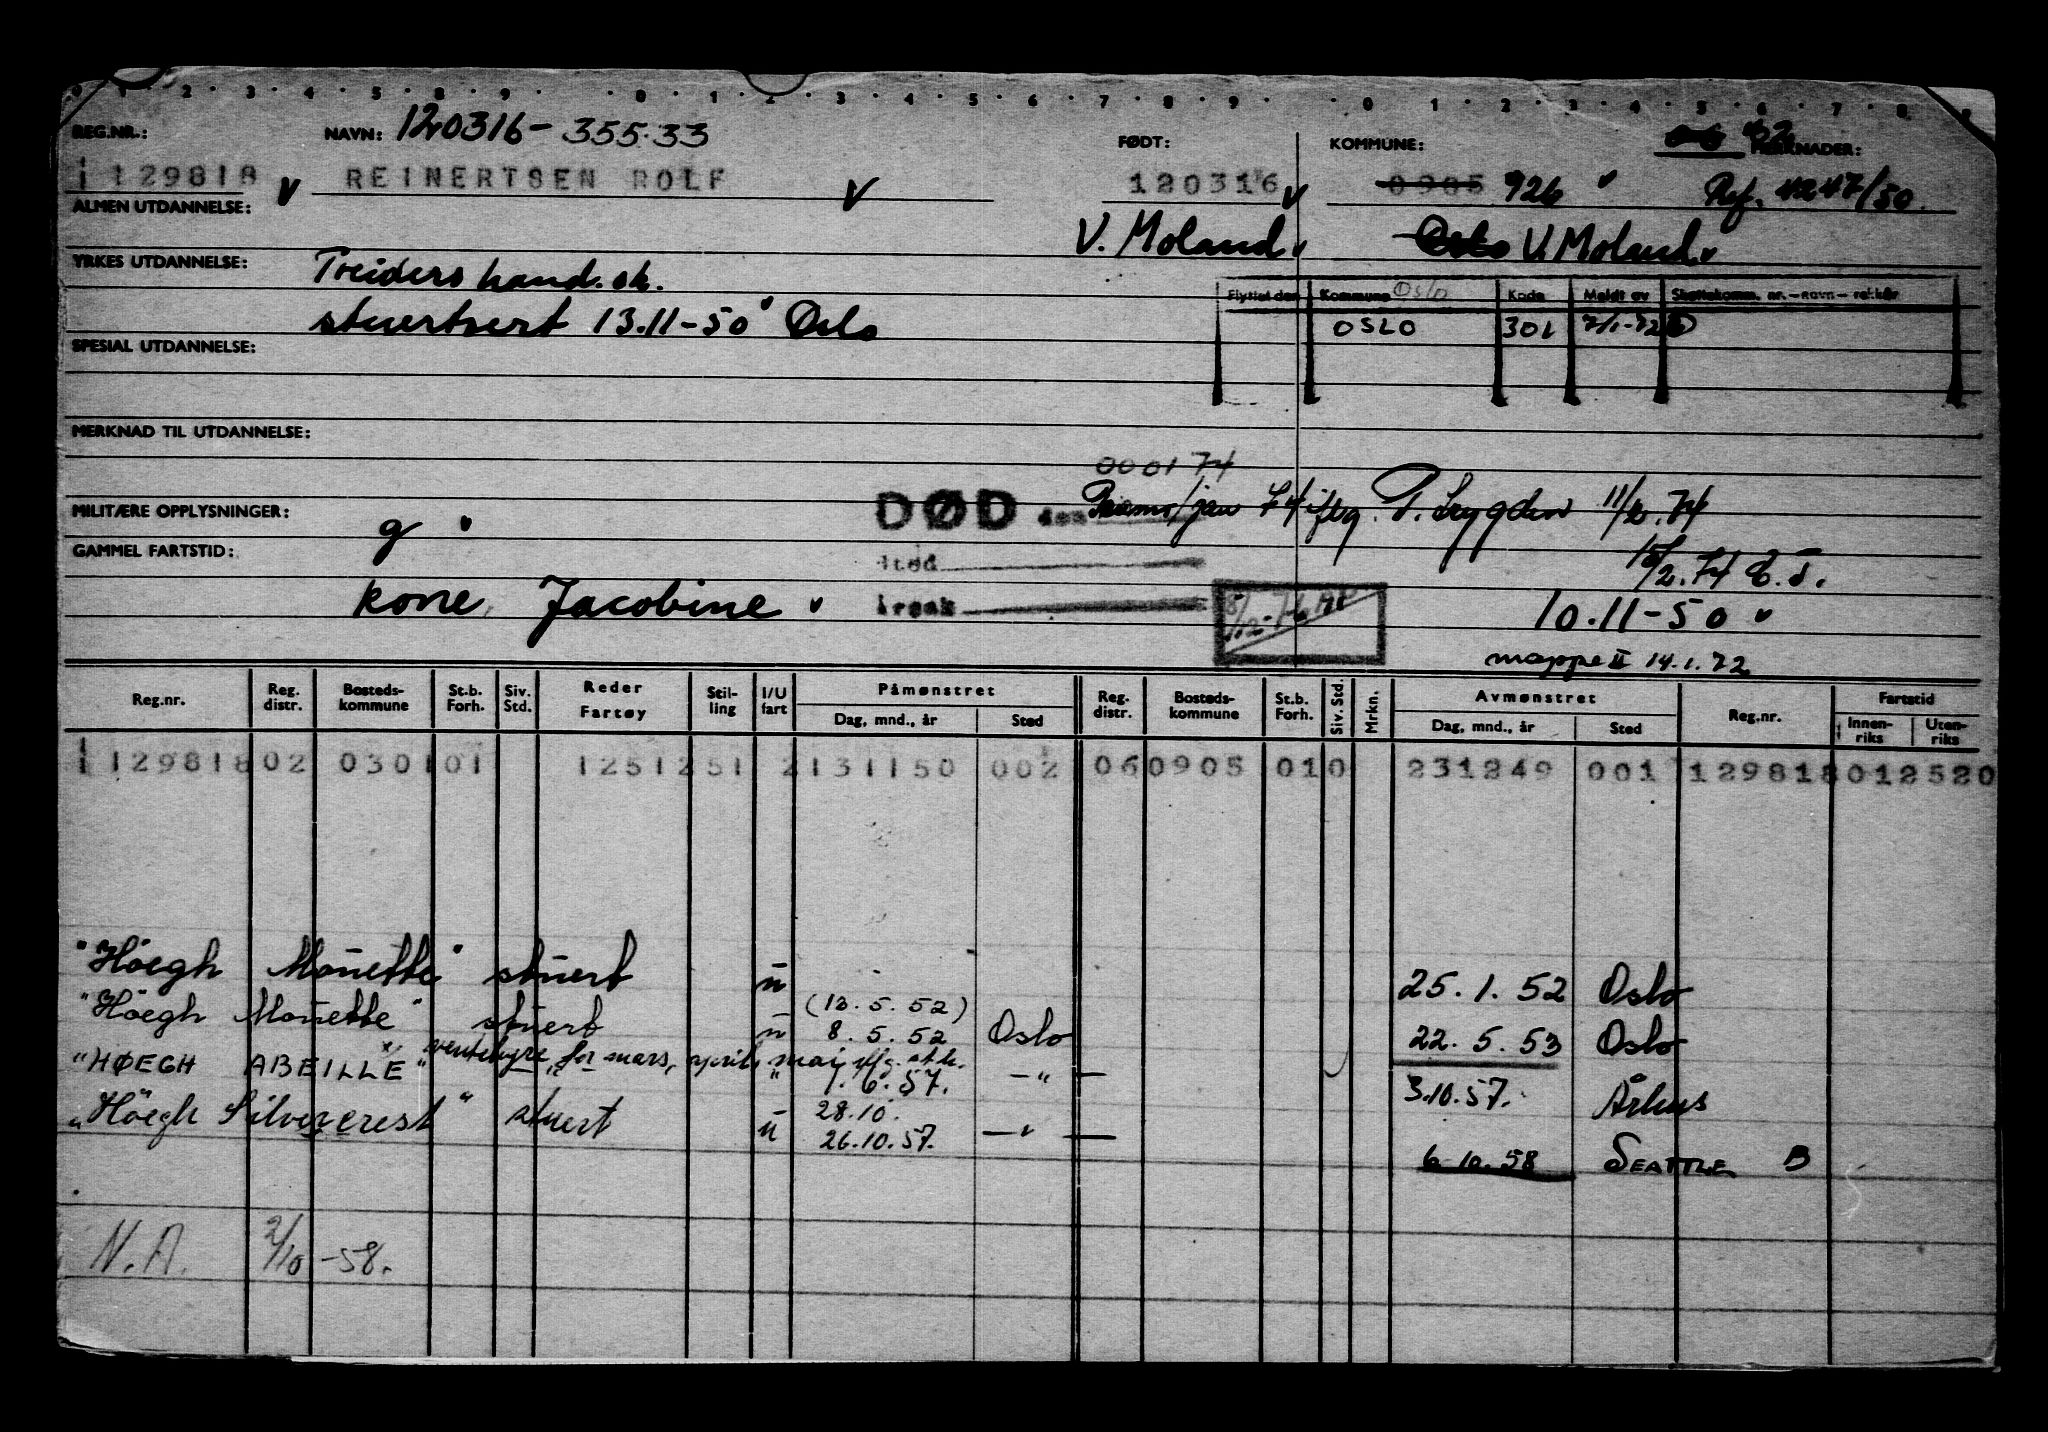 0 1 2 3 4 5 8 9 0 1 2 3 4 5 6 7 8 9 0 1 2 3 4 5 6 7 8 9
REG.NR.: NAVN: 120316-355.33 FØDT: KOMMUNE: 06 62 MERKNADER:
1129818 v REINERTSEN ROLF v 120316 v 0905 926 v Ref. 4247/50
ALMEN UTDANNELSE: V. Moland v Oslo V. Moland v
YRKES UTDANNELSE: Treiders hand. sk.
Flyttet den Kommune Oslo Kode Meldt av Skattekomm. nr. – navn – rel.kår
stuertsert 13.11-50 v Oslo OSLO 301 7/1-72
SPESIAL UTDANNELSE:
MERKNAD TIL UTDANNELSE:
000174
DØD den /jan 74 iflg. 11/2.74
MILITÆRE OPPLYSNINGER: g v
GAMMEL FARTSTID: sted 15/2.74
kone Jacobine v årsak 10.11-50 v
mappe II 14.1.72
Reg.nr. Reg. distr. Bosteds-kommune St.b. Forh. Siv. Std. Reder Fartøy Stil-ling I/U fart Påmønstret Dag, mnd., år Sted Reg. distr. Bosteds-kommune St.b. Forh. Siv. Std. Mrkn. Avmønstret Dag, mnd., år Sted Reg.nr. Fartstid Innen-riks Uten-riks
1129818 02 0301 01 1251251 2 131150 002 06 0905 01 0 231249 001 129818 012520
"Höegh Mouette" stuert u 25.1.52 Oslo
(13.5.52)
"Höegh Mouette" stuert u 8.5.52 Oslo 22.5.53 Oslo
ventehyre for mars, april, mai iflg.
"HØEGH ABEILLE" " 1.6.57. —"— 3.10.57. Århus
28.10.
"Höegh Silvercrest" stuert u 26.10.57. —"— 6.10.58 SEATTLE B
N.A. 2/10-58.